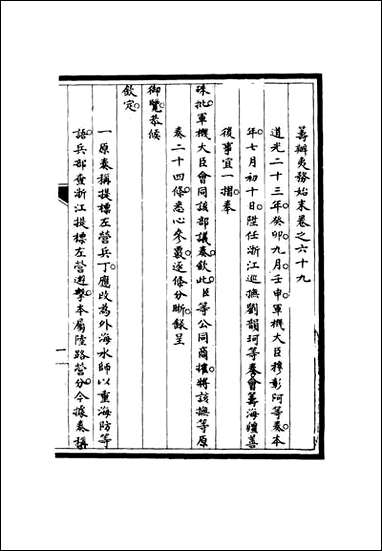 籌辦夷務始末卷之六十九
道光二十三年癸卯九月壬申軍機大臣穆彰阿等奏本
年七月初十日陞任浙江巡撫劉韻珂等奏會籌海疆善
後事宜一摺奉
硃批軍機大臣會同該部議奏欽此臣等公同商搉將該撫等原
奏二十四條悉心參覈逐條分晰繕呈
御覽恭候
欽定
一原奏稱提標左營兵丁應改為外海水師以重海防等
語兵部查浙江提標左營遊擊本屬陸路營分今據奏稱
一